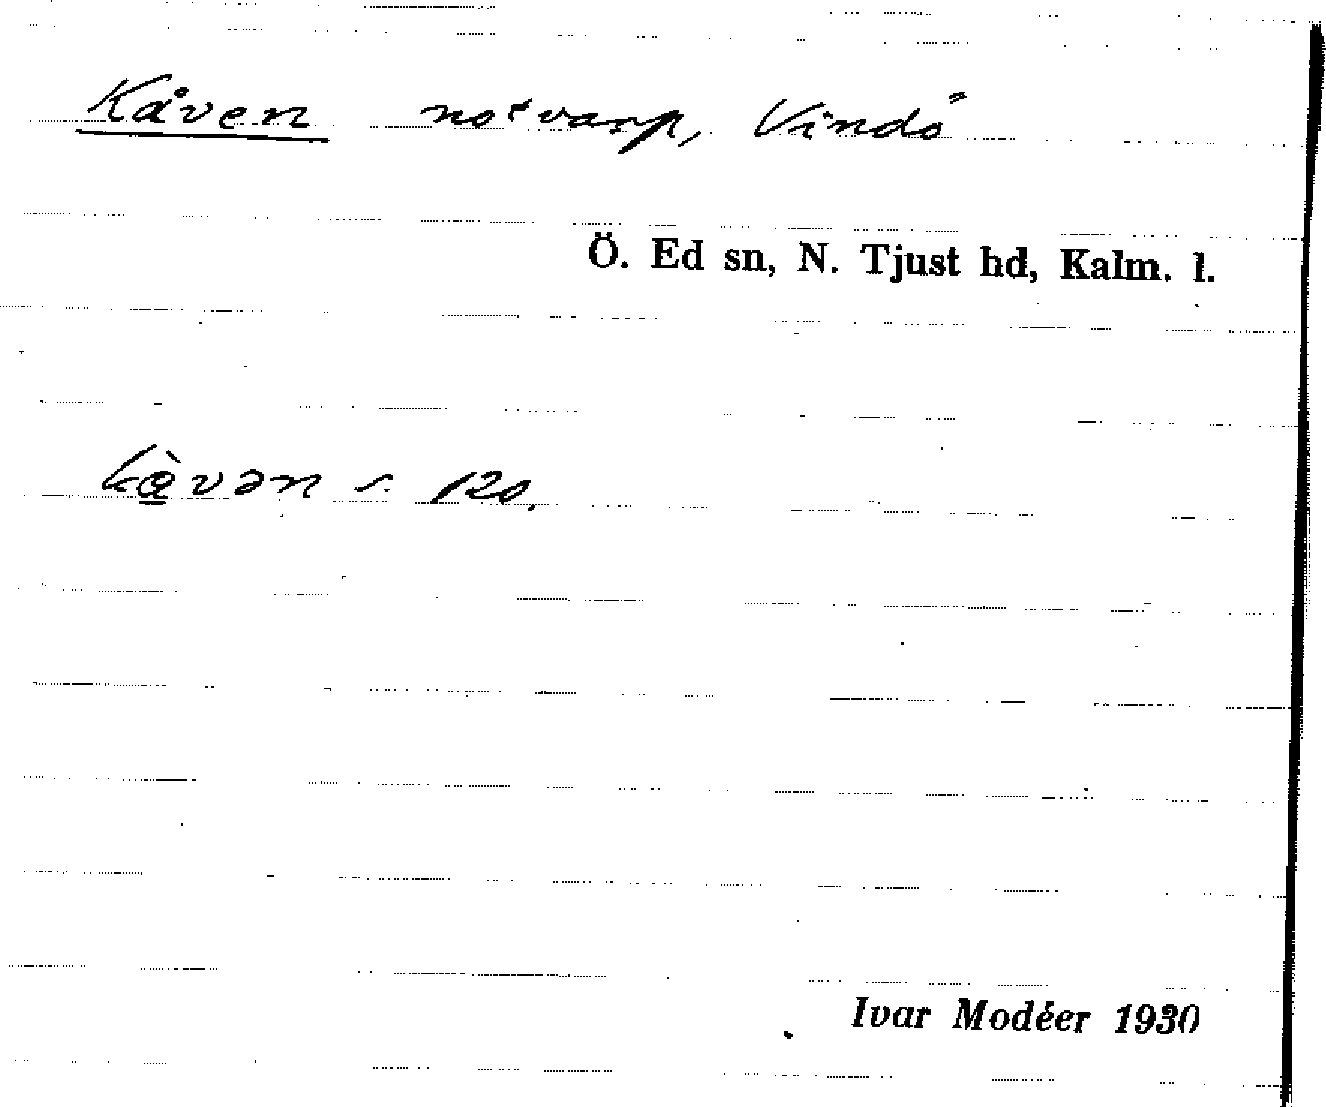 Kåven notvarp, Vindö
Ö. Ed sn, N. Tjust hd, Kalm. l.
kàvən s. 120.
Ivar Modéer 1930